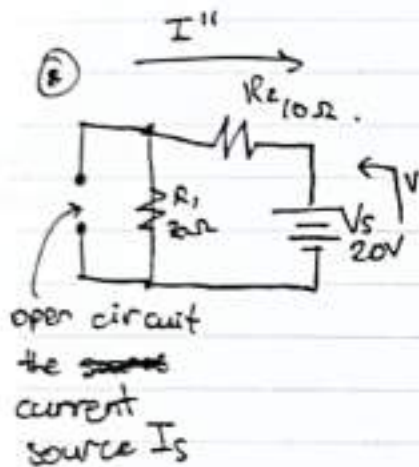 I"
R2 10Ω.
R1
Vs
20V
V
open circuit
the
current
source Is